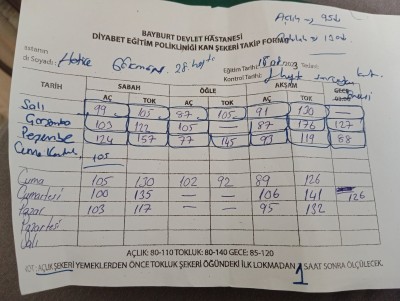 Açlık → 95↓
BAYBURT DEVLET HASTANESİ
DİYABET EĞİTİM POLİKLİNİĞİ KAN ŞEKERİ TAKİP FORMU
Hastanın
Adı Soyadı: Hatice 28. hafta
Eğitim Tarihi:
Kontrol Tarihi: 1 hafta sonra
TARİH SABAH ÖĞLE AKŞAM GECE
AÇ TOK AÇ TOK AÇ TOK 03:00
Salı 99 105 87 105 91 130
Çarşamba 103 122 105 — 87 176 127
Perşembe 124 157 77 145 93 119 88
Cuma 105
Cuma 105 130 102 92 89 126
Cumartesi 100 135 — — 106 141 126
Pazar 103 117 — — 95 132
Pazartesi
Salı
AÇLIK: 80-110 TOKLUK: 80-140 GECE: 85-120
NOT: AÇLIK ŞEKERİ YEMEKLERDEN ÖNCE TOKLUK ŞEKERİ ÖĞÜNDEKİ İLK LOKMADAN 1 SAAT SONRA ÖLÇÜLECEK.